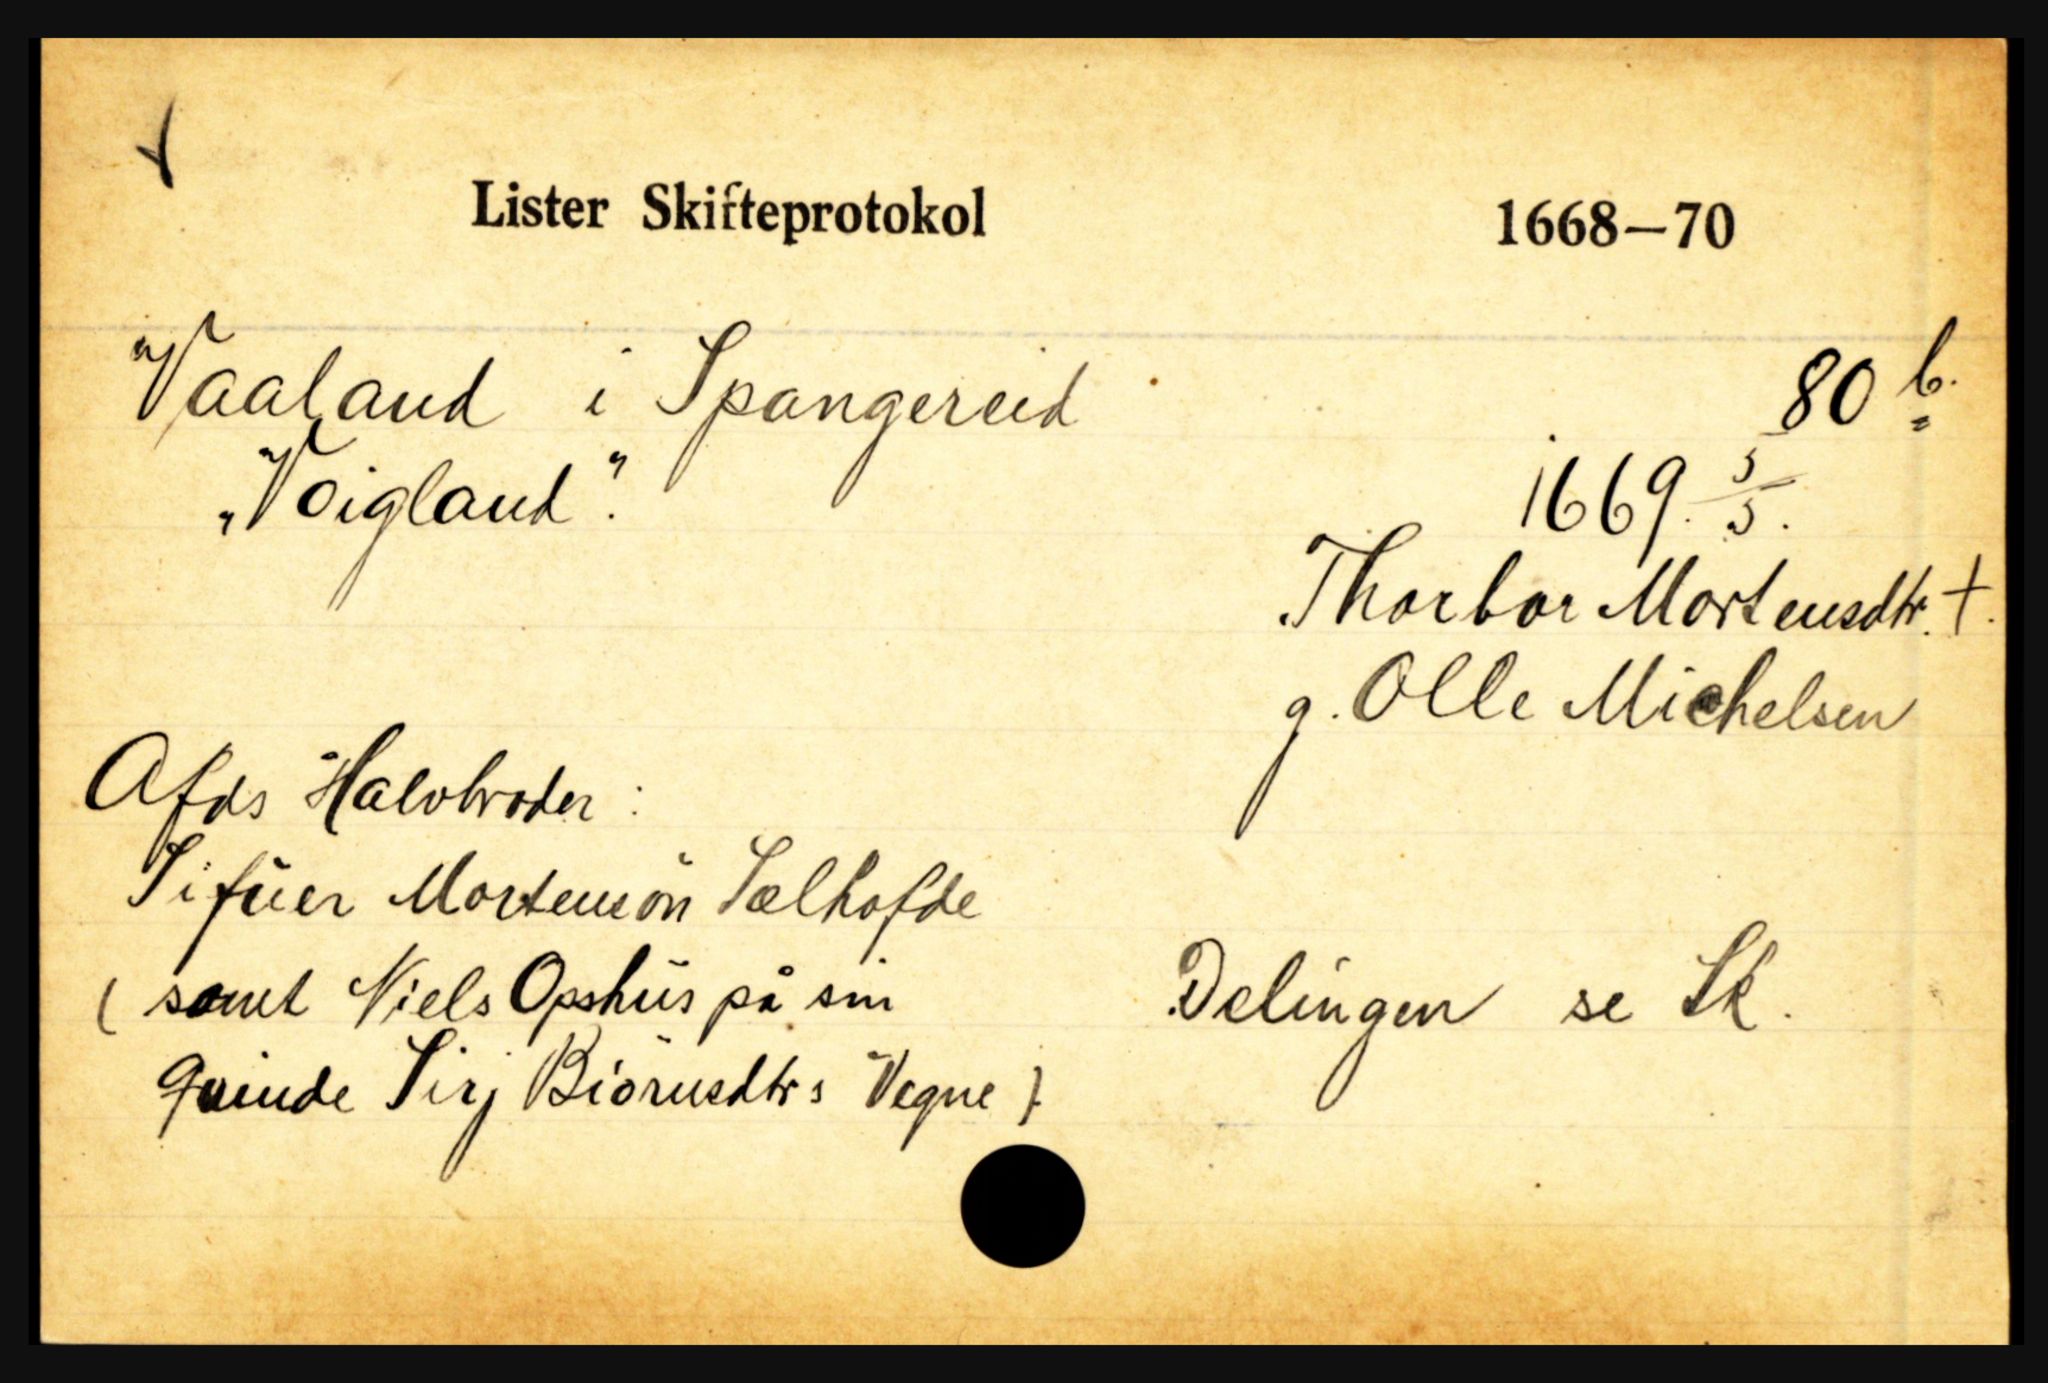 Lister Skifteprotokol 1668—70
Vaaland i Spangereid 80 b.
„Voigland". 1669. 5/5.
Thorbor Mortensdtr. +.
g. Olle Michelsen
Afds Halvbroder:
Sifuer Mortensön Sælhofde
( samt Niels Opshus på sin Delingen se Sk.
Quinde Sirj Biörnsdtrs Vegne )